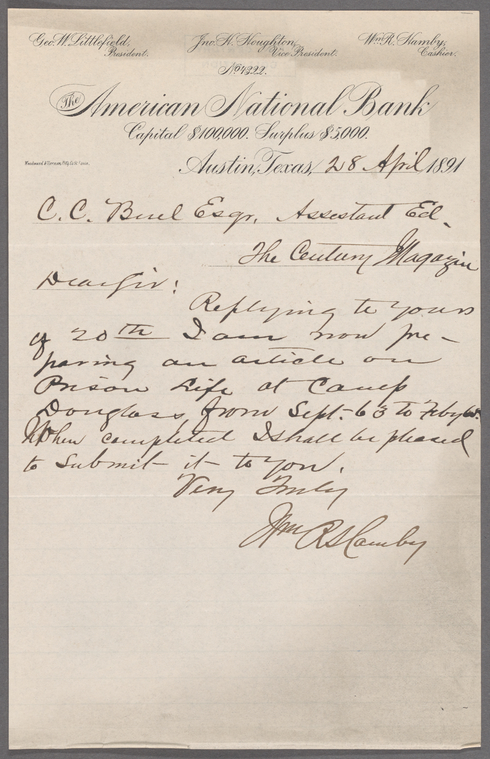 Geo. W. Littlefield, Jno. H. Houghton, Wm. R. Hamby,
President. Vice President. Cashier.
No 4322.
The American National Bank
Capital $100,000. Surplus $5,000.
Austin, Texas, 28 April 1891
C. C. Buel Esqr, Assestant Ed.
The Century Magazin
Dear Sir:
Replying to yours
of 20th I am now pre-
paring an article on
Prison Life at Camp
Douglass, from Sept. 63 to Feby
When completed I shall be pleased
to submit it to you.
Very Truly
Wm R Hamby